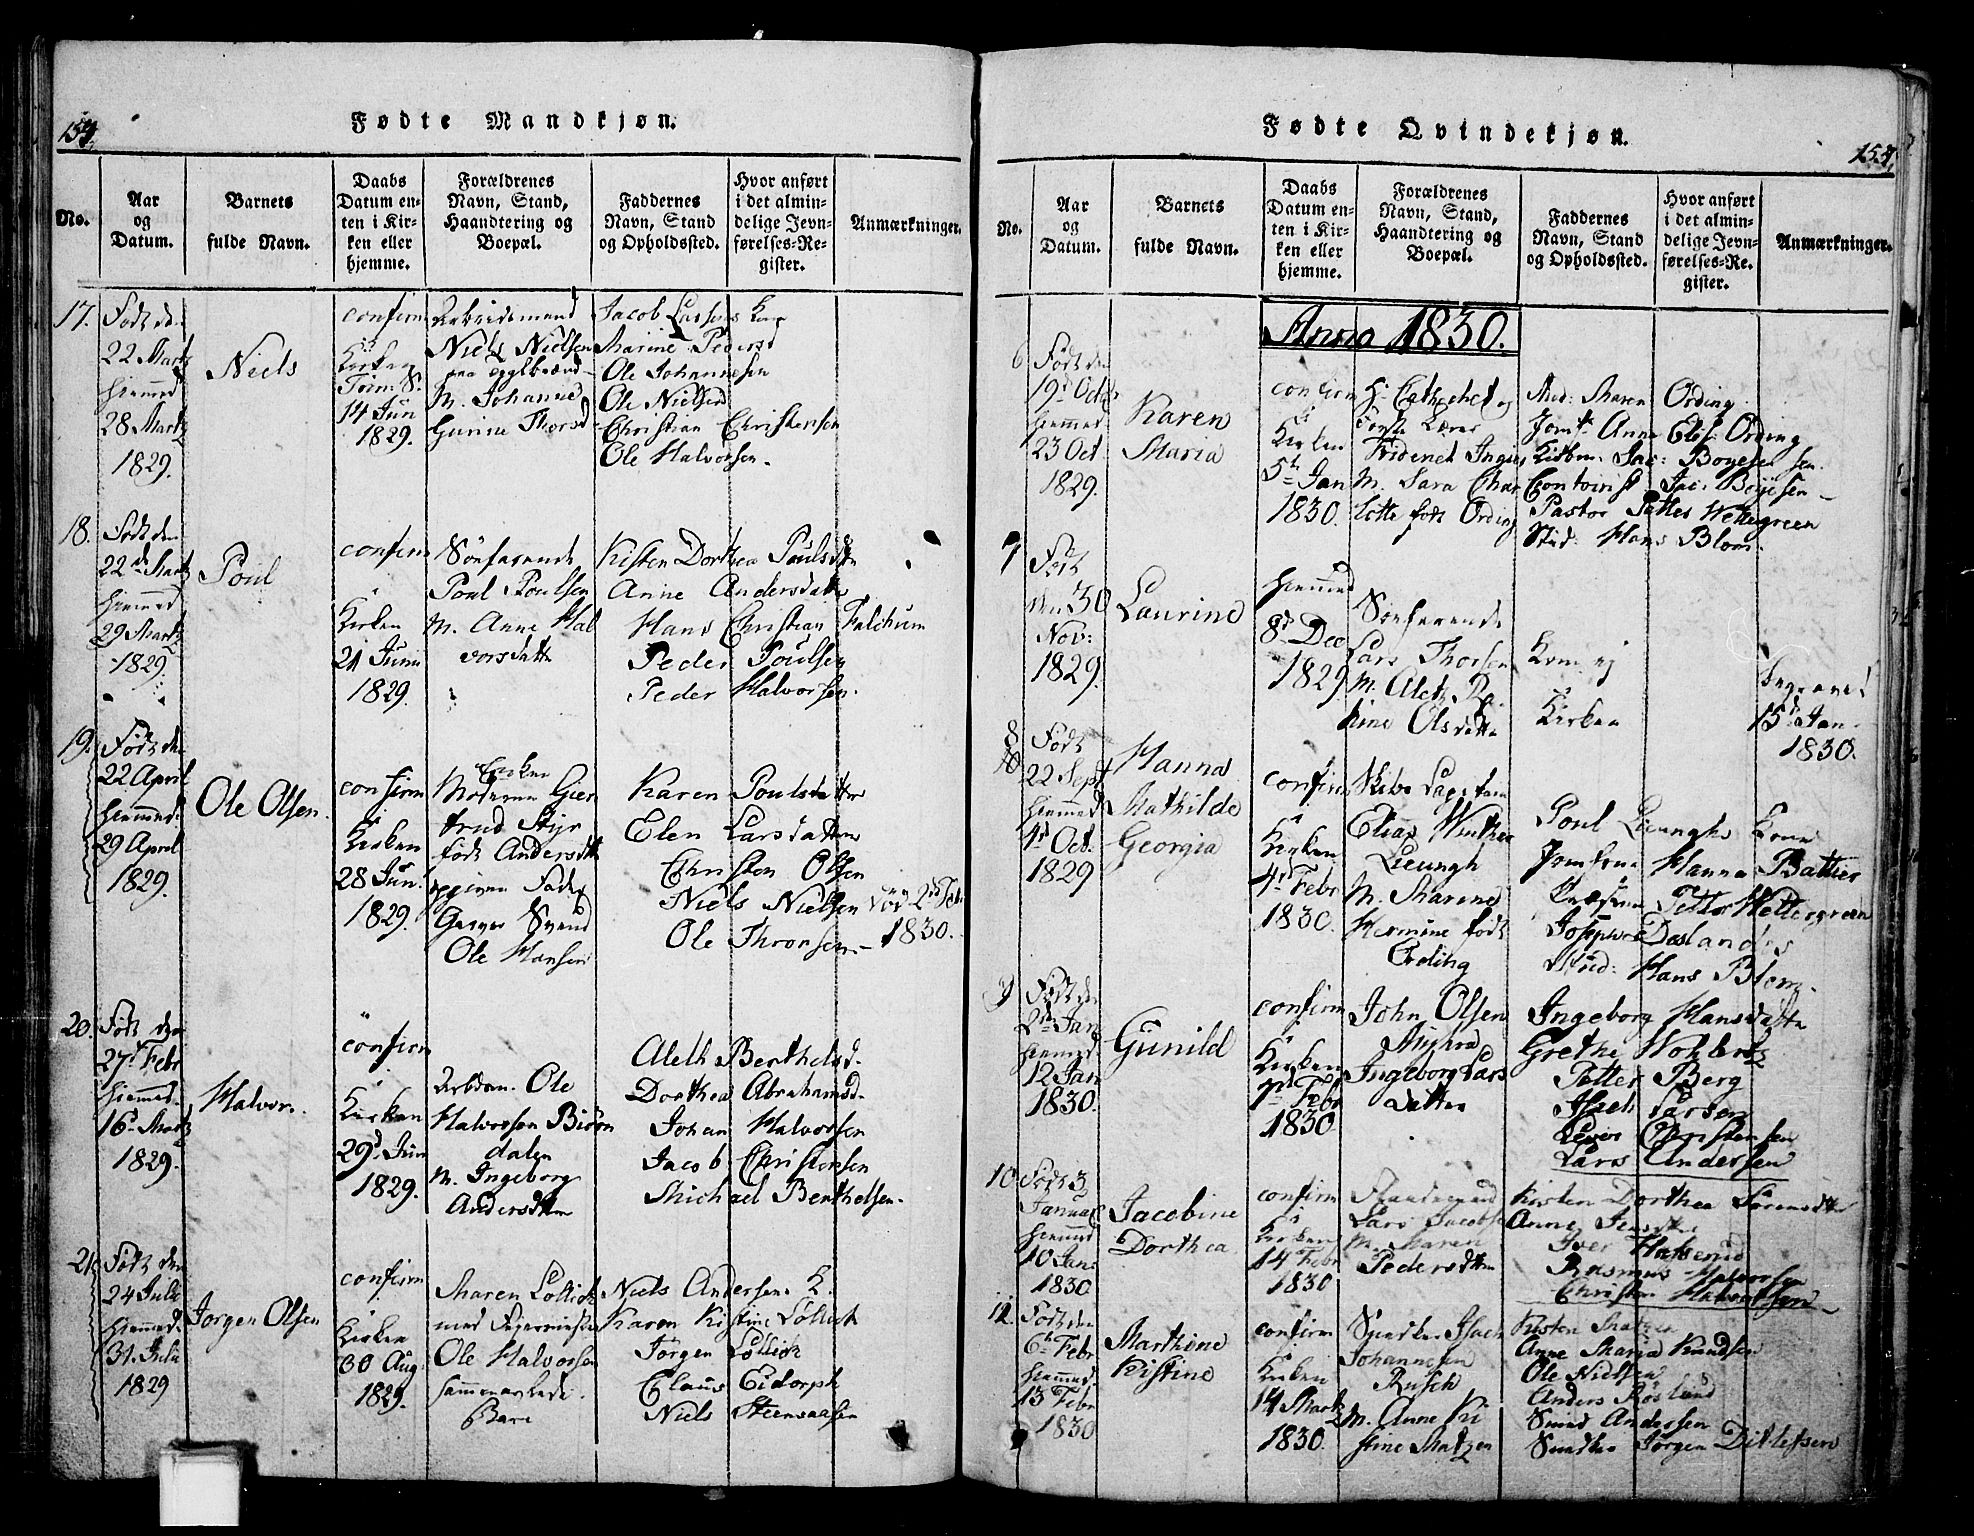 154.
Fødte Mandkjøn.
No.
Aar
og
Datum.
Barnets
fulde Navn.
Daabs
Datum en-
ten i Kir-
ken eller
hjemme.
Forældrenes
Navn, Stand,
Haandtering og
Boepæl.
Faddernes
Navn, Stand
og Opholdssted.
Hvor anført
i det almin-
delige Jevn-
førelses-Re-
gister.
Anmærkninger.
17.
Født den
22 Martz
hiemmed
28 Martz
1829.
Niels
confirm
i
Kirken
14 Jun
1829.
Arbeidsmand
Niels Nielsen
M. Johanne
Gurine Thorsd
Jacob Larsens Kone
Marine Pedersd
Ole Johannesen
Ole Nielsen
Christian Christensen
Ole Halvorsen.
18.
Født den
22de Martz
hiemmed
29 Martz
1829.
Poul
confirm
i
Kirken
21 Juni
1829.
Søefarende
Poul Poulsen
M. Anne Hal
vorsdatter
Kisten Dorthea Poulsdtr
Anne Andersdatter
Hans Christian Falchum
Peder Poulsen
Peder Halvorsen.
19.
Født den
22 April
hiemmed
29 April
1829.
Ole Olsen.
confirm
i
Kirken
28 Jun.
1829.
Enken
Moderen Gier
trud Styr
født Andersdtr
Fader
Svend
Ole Hansen
Karen Poulsdatter
Elen Larsdatter
Christen Olsen
Niels Nielsen
Ole Thronsen
død 2de Feb.
1830.
20.
Født den
27 Febr
hiemmed.
16 Martz
1829.
Halvor.
confirm
i
Kirken
29d Jun
1829.
Arbdsm. Ole
Halvorsen Biørn
dalen
M. Ingeborg
Andersdtter
Aleth Berthelsd.
Dorthea Abrahamsd.
Johan Halvorsen
Jacob Christensen
Michael Berthelsen.
21.
Født den
24 Juli
hiemmed.
31 Juli
1829
Jørgen Olsen
confirm
i
Kirken
30 Aug:
1829.
Maren Lollick
med
Ole Halvorsen
sammestede.
Niels Andersens K.
Karen Kistine Lollick
Jørgen Lollick
Claus Eidorph
Niels Steensaasen
Fødte Qvindekjøn.
154.
No.
Aar
og
Datum.
Barnets
fulde Navn.
Daabs
Datum en-
ten i Kir-
ken eller
hjemme.
Forældrenes
Navn, Stand,
Haandtering og
Boepæl.
Faddernes
Navn, Stand
og Opholdssted.
Hvor anført
i det almin-
delige Jevn-
førelses-Re-
gister.
Anmærkninger.
Anno 1830.
6
Født den
19d Octbr
hiemmed
23 Oct
1829.
Karen
Maria
confirm
i
Kirken
5te Jan
1830.
Hr. Cathechet og
første Lærer
Fridenel Ingier
M. Sara Char
lotte født Ording
Mad: Maren Ording
Jomf. Anne Elis: Ording
Kiøbm: Jac: Boyesen
Contorist Jac: Boyesen
Pastor Petter Wettergreen
Stud: Hans Blom.
7
Født
den 30
Nov:
1829.
Laurine
hiemmed
8d Dec
1829
Søefarende
Lars Thorsen
M. Aleth
Olsdatter
Kom ej
i
Kirken
begravet
15d Jan.
1830.
8
Født
22 Sept
hiemmed
4d Oct.
1829
Hanna
Mathilde
Georgia
confirm
i
Kirken
4d Febr
1830.
Elias Winther
Lieungh
M. Marine
Hermine født
Ording
Poul Lieunghs Kone
Jomfrue Hanna Battier
Petter Wettergreen
Joseph Deslandes
Stud: Hans Blom.
9
Født den
2den Jan
hiemmed
12 Jan
1830.
Gunild
confirm
i
Kirken
7d Febr
1830
John Olsen
Ingeborg Lars
datter
Ingeborg Hansdatter
Grethe Wohlert
Petter Berg
Isach Larsen
Christensen
Lars Andersen
10
Født 3
Januar
hiemmed
10 Jan:
1830.
Jacobine
Dorthea.
confirm
i
Kirken
14 Febr
1830
Strandemand
Lars Jacobsen
M. Maren
Pedersdtter
Kirsten Dorthea Sørensdtr
Anne Jensdtr
Iver
Rasmus Halvorsen
Christen Halvorsen
11.
Født den
6te Febr
hiemmed.
13 Febr
1830
Marthine
Kistine
confirm
i
Kirken
14 Martz
1830.
Snedker Isach
Johannesen
Rusch
M. Anne Ki
stine Matzen
Kisten Matzen
Anne Maria Knudsen
Ole Nielsen
Anders Røslund
Svend Andersen
Snedker Jørgen Ditlefsen